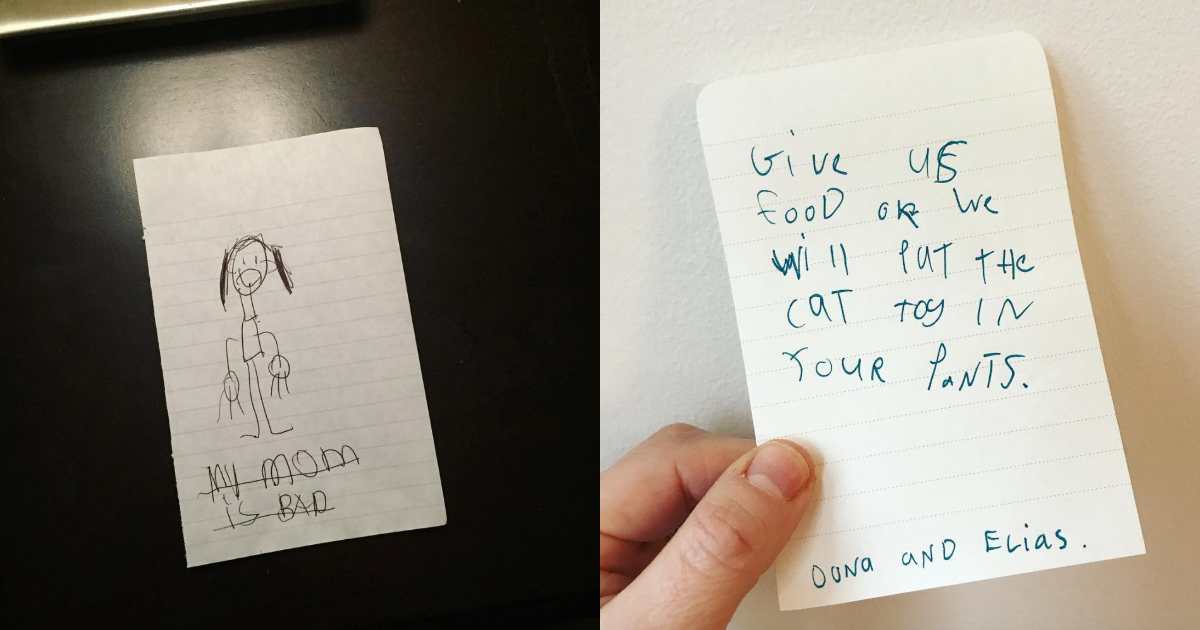 MY MOM
is BAD
Give US
fooD oR We
will PuT THe
CaT Toy IN
YOUR PaNTS.
OONa aND ELias.